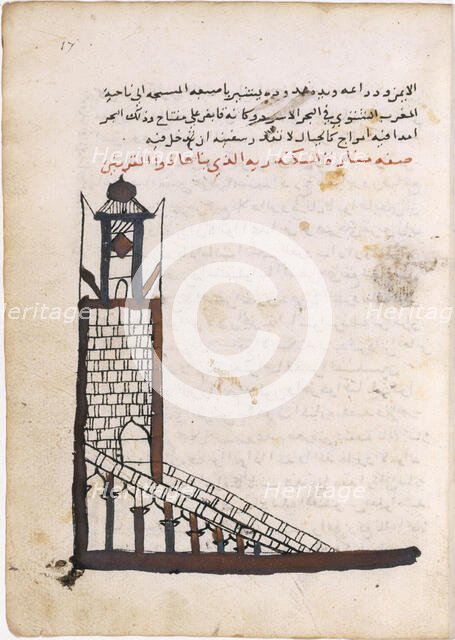 17
الايمن ودراعه ويده ممدوده يشير باصبعه المسبحه الى ناحية
المغرب الشتوي في البحر الاسود وكانه قابض على مفتاح وذلك البحر
فيه امواج كالجبال لا تقدر سفينه ان تدخل فيه
صفه مناره اسكندريه الذي بناها ذوا القرنين
Heritage
Heritage
Heritage
Heritage
Heritage
Heritage